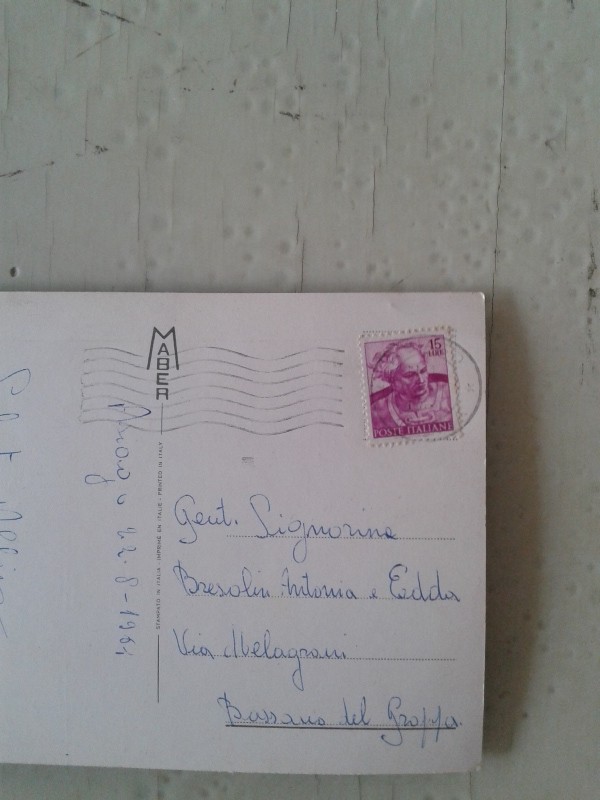 MABER
15 LIRE
POSTE ITALIANE
Gent. Signorina
Bresolin Antonia e Edda
Via Melagrani
Bassano del Grappa.
STAMPATO IN ITALIA - IMPRIMÉ EN ITALIE - PRINTED IN ITALY
22.8-1964